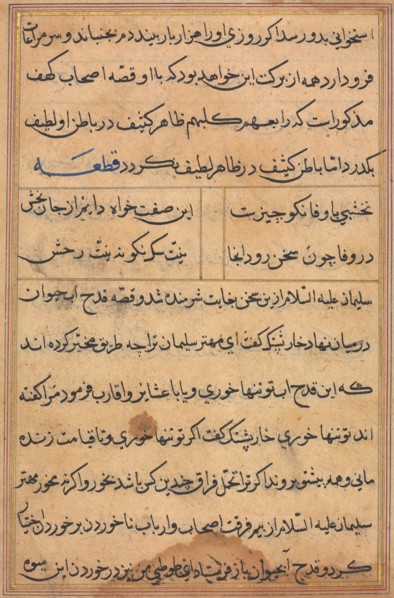 استخوانی بدو رسد اگر روزی او را هزار بار بیند دم بجنباند و سر مراعات
فرود آرد همه از برکت این خواهد بود که با او قصه اصحاب کهف
مذکور است که رابعهم کلبهم ظاهر کثیف در باطن او لطیف
نکردد اما باطن کثیف در ظاهر لطیف بکردد قطعه
نخشبی با وفا نکو چیزیست
این صفت خواه دایم از جان بخش
در وفا چون سخن رود آنجا
سک نکو به رخش
سلیمان علیه السلام ازین سخن بغایت شرمنده شد و قصه قدح اب حیوان
در میان نهاد خارپشتک کفت ای مهتر سلیمان ترا چه طریق مخیر کرده اند
که این قدح اب تو تنها خوری و یا با عشایر و اقارب فرمود مرا کفته
اند تو تنها خوری خارپشتک کفت اکر تو تنها خوری و تا قیامت زنده
مانی و همه پیش تو بروند اکر ترا تحمل فراق چندین کس باشد بخور و اکر نه مخور مهتر
سلیمان علیه السلام از بیم فرقت اصحاب و ارباب ناخوردن بر خوردن اختیار
کرد و قدح آبحیوان باز فرستاد ای طوطی من نیز در خوردن این میوه